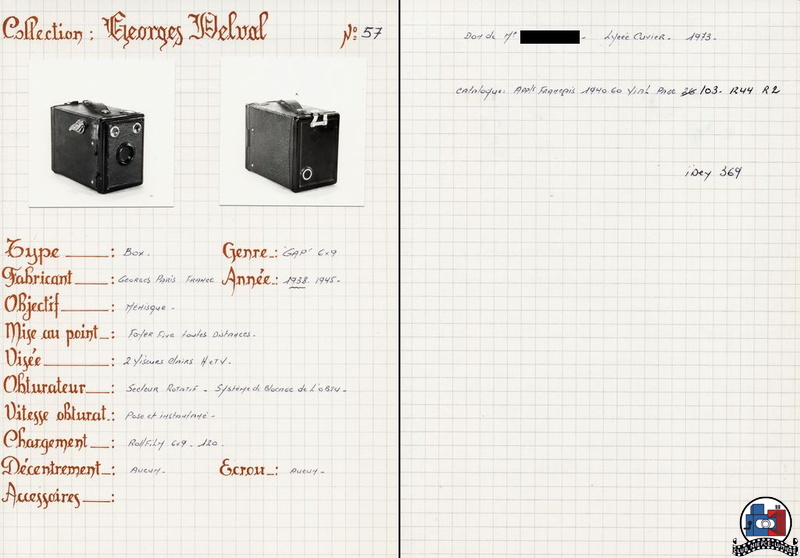 Collection : Georges Delval
No: 57
Type : Box.
Genre : "GAP" 6x9
Fabricant : Georges Paris France
Année : 1938. 1945.
Objectif : Ménisque.
Mise au point : Foyer Fixe toutes Distances.
Visée : 2 Viseurs Clairs H et V.
Obturateur : Secteur Rotatif. Système de Blocage de l'obtu.
Vitesse obturat. : Pose et instantané.
Chargement : RollFilm 6x9. 120.
Décentrement : Aucun.
Ecrou : Aucun.
Accessoires :
Don de Mr . Lycée Cuvier. 1973.
Catalogue: Appls Français 1940 60 Vial Page /03. R44 R2
iDey 369